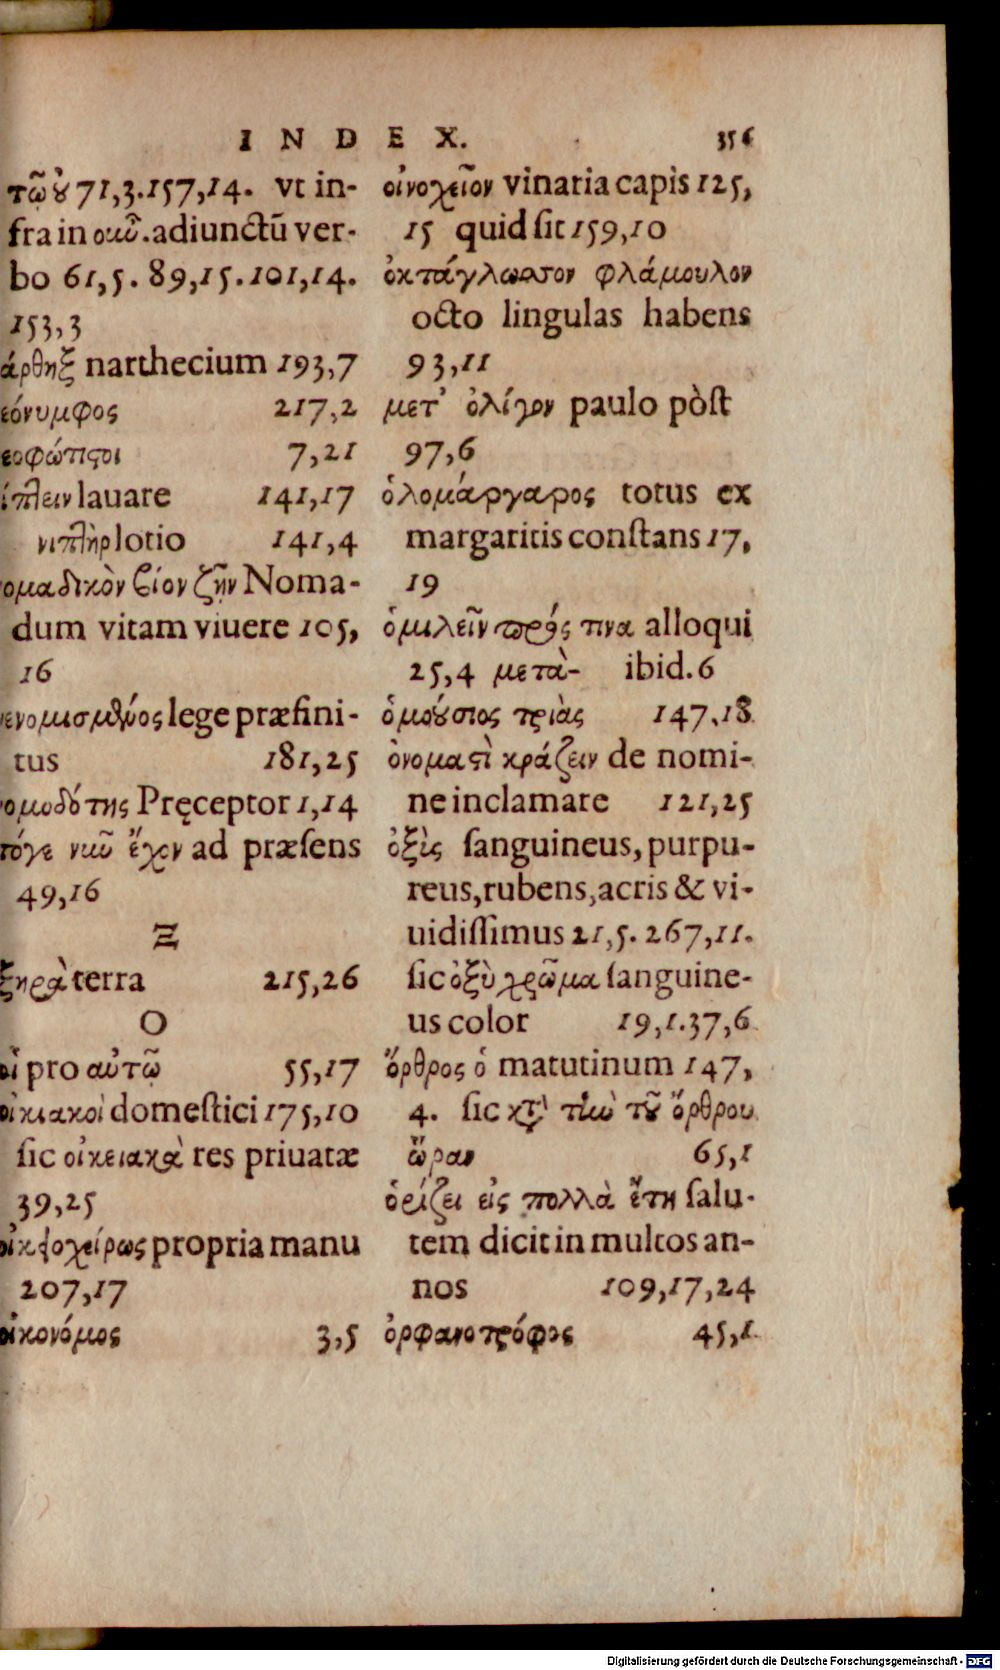 INDEX. 356
τῶ οὐ 71,3.157,14. vt in-
fra in οκῦ. adiunctū ver-
bo 61,5. 89,15.101,14.
153,3
άρθηξ narthecium 193,7
εόνυμφος 217,2
εοφώτιςοι 7,21
ίπλειν lauare 141,17
νιπλὴρ lotio 141,4
ομαδικὸν βίον ζῆν Noma-
dum vitam viuere 105,
16
νενομισμένος lege præfini-
tus 181,25
ομοδότης Pręceptor 1,14
τόγε νιῦ ἔχον ad præsens
49,16
Ξ
ξηρὰ terra 215,26
O
οἷ pro αὐτῷ 55,17
οἰκιακοὶ domestici 175,10
sic οἰκειακὰ res priuatæ
39,25
οἰκφοχείρως propria manu
207,17
οἰκονόμος 3,5
οἰνοχεῖον vinaria capis 125,
15 quid sit 159,10
ὀκτάγλωσσον φλάμουλον
octo lingulas habens
93,11
μετ' ὀλίγον paulo pòst
97,6
ὁλομάργαρος totus ex
margaritis constans 17,
19
ὁμιλεῖν πρός τινα alloqui
25,4 μετὰ- ibid. 6
ὁμούσιος τριὰς 147,18
ὀνομαςὶ κράζειν de nomi-
ne inclamare 121,25
ὀξὶς sanguineus, purpu-
reus, rubens, acris & vi-
uidissimus 21,5. 267,11.
sic ὀξὺ χρῶμα sanguine-
us color 19,1.37,6
ὄρθρος ὁ matutinum 147,
4. sic κτ τὴν τοῦ ὄρθρου
ὥραν 65,1
ὁρίζει εἰς πολλὰ ἔτη salu-
tem dicit in multos an-
nos 109,17,24
ὀρφανοτρόφος 45,1
Digitalisierung gefördert durch die Deutsche Forschungsgemeinschaft - DFG